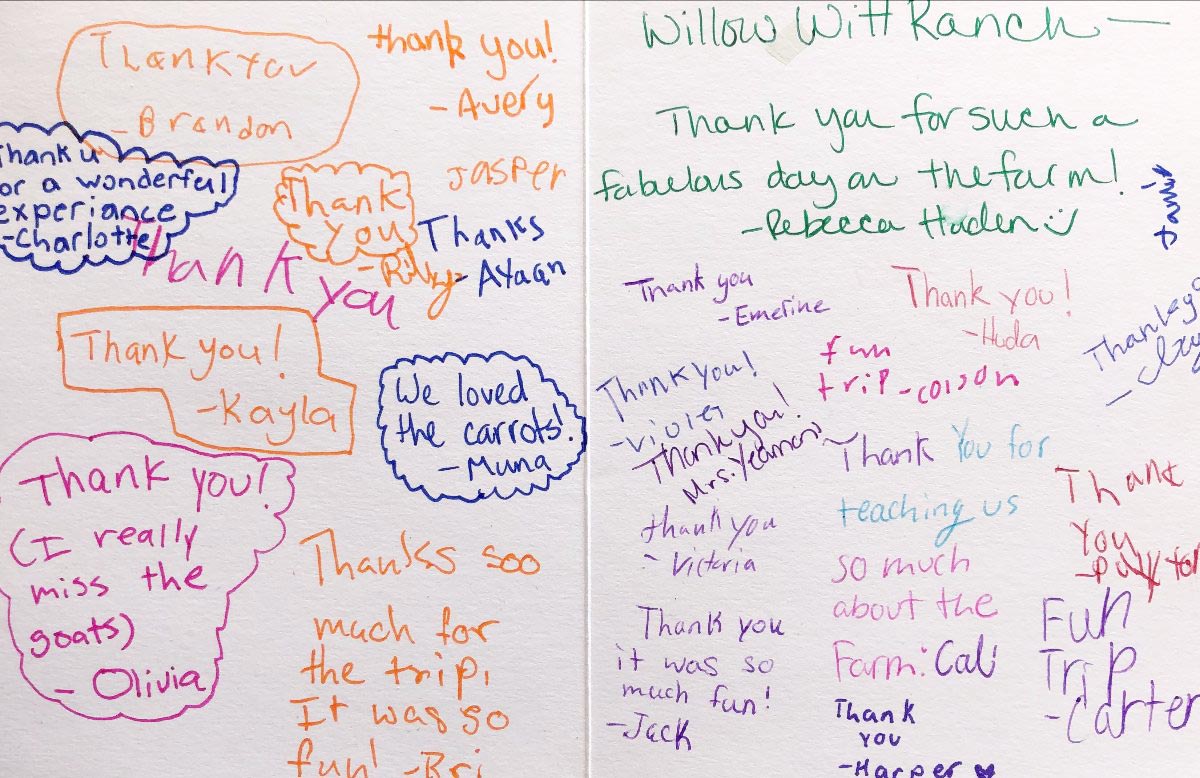 Thank you
-Brandon
thank you!
-Avery
Thank u
or a wonderful
experiance
-Charlotte
Thank
you
-Riley
Jasper
Thanks
-Ayaan
Thank
you
Thank you!
-Kayla
We loved
the carrots!
-Muna
Thank you!
(I really
miss the
goats)
- Olivia
Thanks soo
much for
the trip,
It was so
fun! -Bri
Willow Witt Ranch —
Thank you for such a
fabulous day on the farm!
-Rebecca Huden :)
Thank you
-Emerine
Thank you!
-Huda
fun
trip -colson
Thank you!
-Violet
Thank you!
Mrs. Yeamans
thank you
~ Victoria
Thank you
it was so
much fun!
-Jack
~Thank You for
teaching us
so much
about the
Farm! Cali
Thank
you
-Harper ♥
Thank
You
Fun
Trip
-Carter